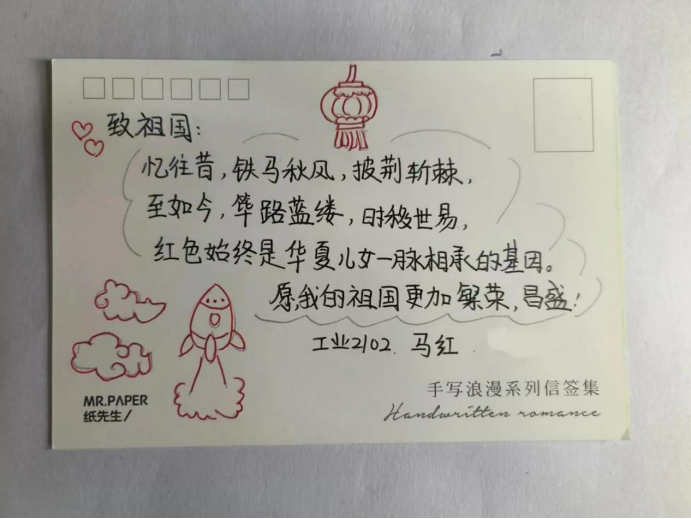 致祖国：
忆往昔，铁马秋风，披荆斩棘，
至如今，筚路蓝缕，时移世易，
红色始终是华夏儿女一脉相承的基因。
愿，我的祖国更加繁荣，昌盛！
工业2102. 马红
手写浪漫系列信签集
Handwritten romance
MR.PAPER
纸先生/